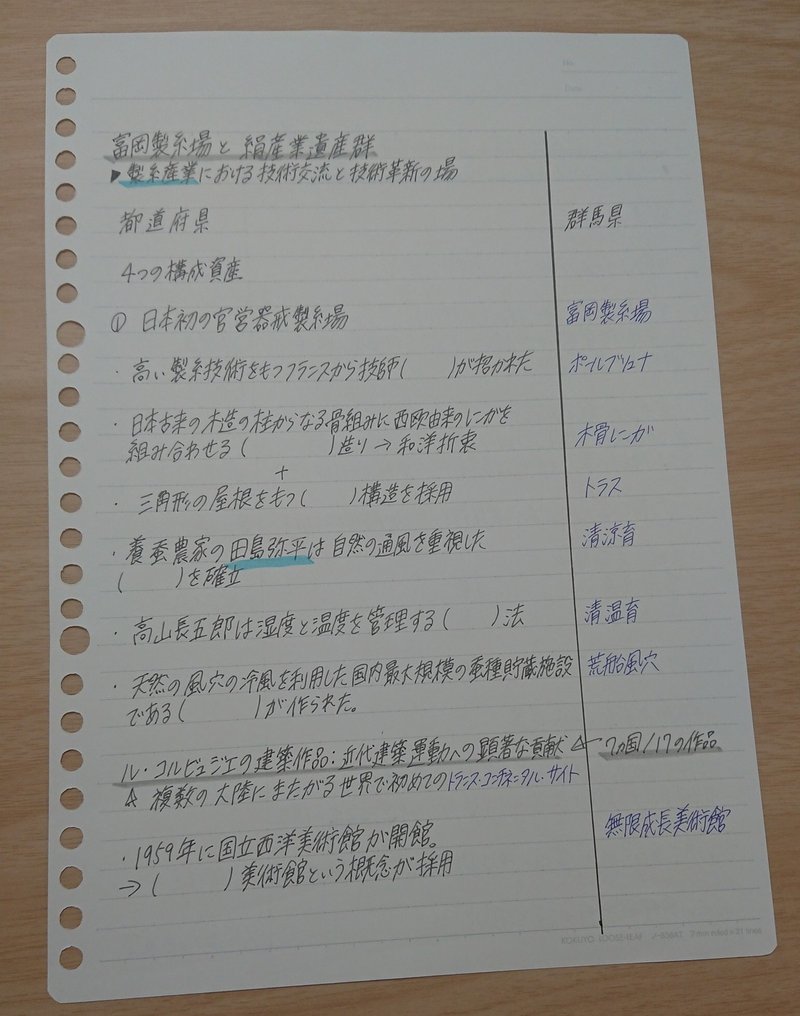 No.
Date
富岡製糸場と絹産業遺産群
▶製糸産業における技術交流と技術革新の場
都道府県 群馬県
4つの構成資産
① 日本初の官営器械製糸場 富岡製糸場
・高い製糸技術をもつフランスから技師( )が招かれた ポールブリュナ
・日本古来の木造の柱からなる骨組みに西欧由来のレンガを
組み合わせる( )造り→和洋折衷 木骨レンガ
+
・三角形の屋根をもつ( )構造を採用 トラス
・養蚕農家の田島弥平は自然の通風を重視した 清涼育
( )を確立
・高山長五郎は湿度と温度を管理する( )法 清温育
・天然の風穴の冷風を利用した国内最大規模の蚕種貯蔵施設 荒船風穴
である( )が作られた。
ル・コルビュジエの建築作品:近代建築運動への顕著な貢献 ← 7カ国/17の作品
複数の大陸にまたがる世界で初めてのトランス・コンチネンタル・サイト
・1959年に国立西洋美術館が開館。 無限成長美術館
→( )美術館という概念が採用
KOKUYO LOOSE-LEAF ノ-836AT 7mm ruled×31 lines